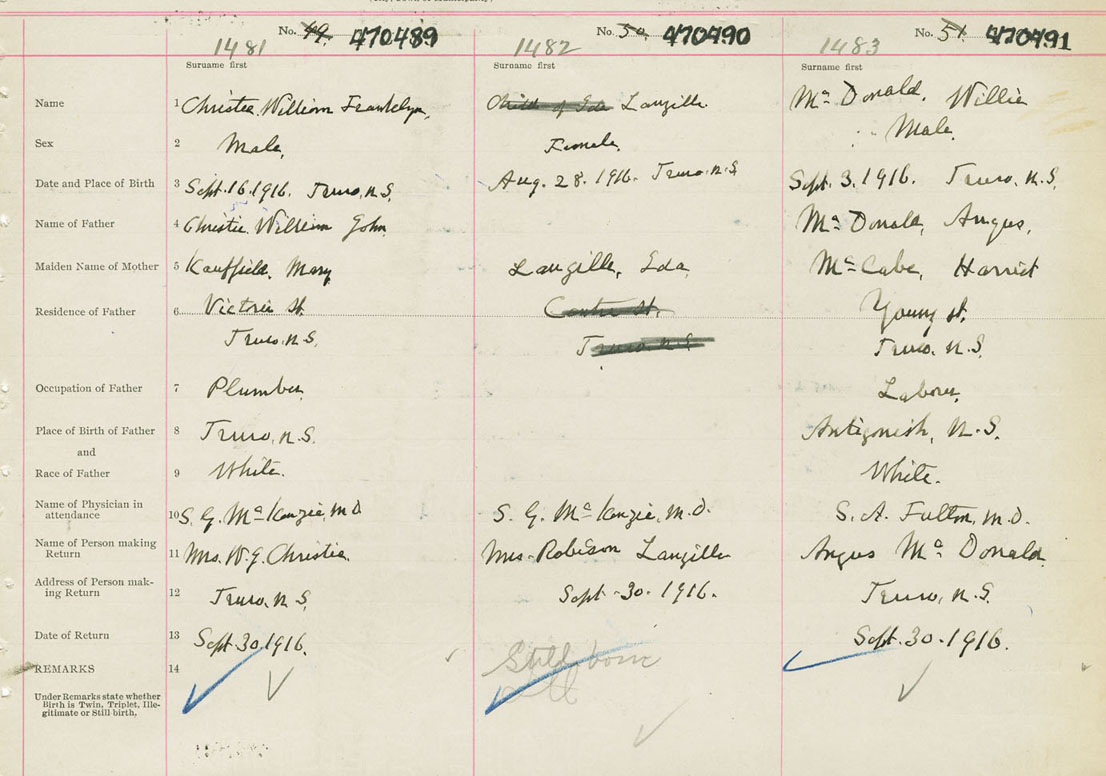 No. 49. 470489 No. 50 470490 No. 51. 470491
1481 1482 1483
Surname first Surname first Surname first
Name 1 Christie William Franklyn, Child of Eda Langille Mc Donald, Willie
Sex 2 Male, Female Male
Date and Place of Birth 3 Sept. 16. 1916. Truro, N.S. Aug. 28. 1916. Truro, N.S. Sept. 3. 1916. Truro, N.S.
Name of Father 4 Christie William John Mc Donald, Angus,
Maiden Name of Mother 5 Mary Langille, Eda Mc Cabe, Harriet
Residence of Father 6 Victoria St. Centre St. Young St.
Truro, N.S. Truro N.S. Truro, N.S.
Occupation of Father 7 Plumber Laborer,
Place of Birth of Father 8 Truro, N.S. Antigonish, N.S.
and
Race of Father 9 White. White.
Name of Physician in
attendance 10 S. G. Mc Kenzie, M.D. S. G. Mc Kenzie, M.D. S. A. Fulton, M.D.
Name of Person making
Return 11 Mrs. W. J. Christie Mrs. Robison Langille Angus Mc Donald
Address of Person mak-
ing Return 12 Truro, N.S. Sept 30. 1916. Truro, N.S.
Date of Return 13 Sept. 30. 1916. Sept. 30. 1916.
REMARKS 14 Still born
Under Remarks state whether
Birth is Twin, Triplet, Ille-
gitimate or Still birth.